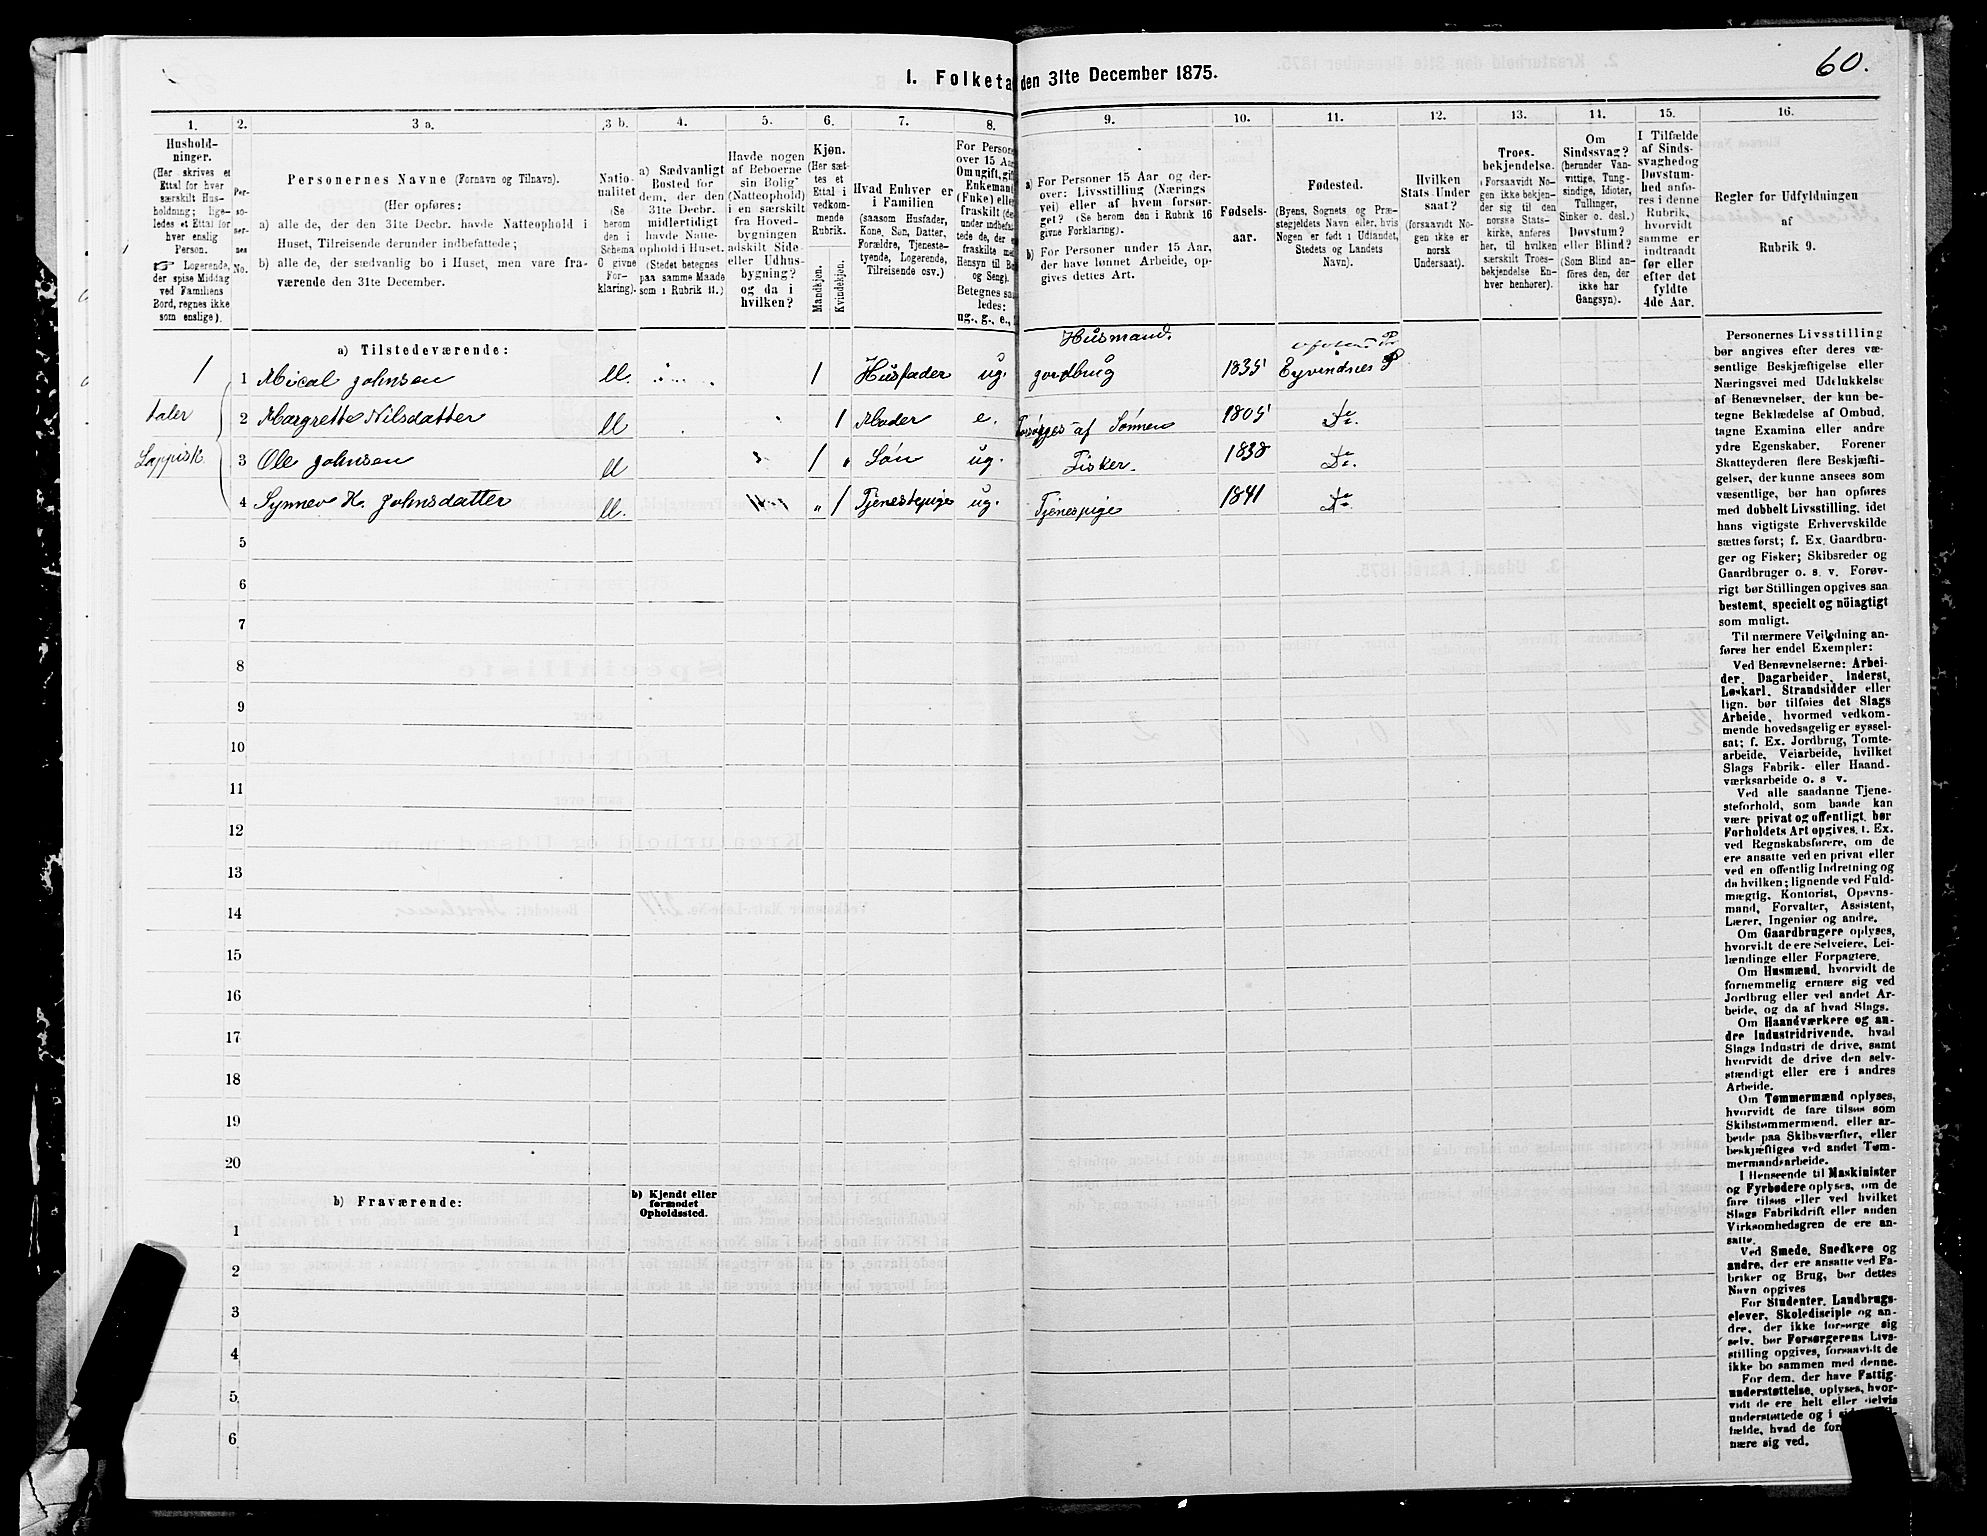 60.
1. Folketa den 31te December 1875.
1.
2.
3 a.
3 b.
4.
5.
6.
7.
8.
9.
10.
11.
12.
13.
14.
15.
16.
Hushold-
ninger.
(Her skrives et
Ettal for hver
særskilt Hus-
holdning; lige-
ledes et Ettal for
hver enslig
Person.
☞ Logerende,
der spise Middag
ved Familiens
Bord, regnes ikke
som enslige).
Per-
so-
ner-
nes
No.
Personernes Navne (Fornavn og Tilnavn).
(Her opføres:
a) alle de, der den 31te Decbr. havde Natteophold i
Huset, Tilreisende derunder indbefattede;
b) alle de, der sædvanlig bo i Huset, men vare fra-
værende den 31te December.
Natio-
nalitet
(Se
herom
den i
Schema
O givne
For-
klaring).
a) Sædvanligt
Bosted for
dem, der den
31te Decbr.
midlertidigt
havde Natte-
ophold i Huset.
(Stedet betegnes
paa samme Maade
som i Rubrik 11.)
Havde nogen
af Beboerne
sin Bolig
(Natteophold)
i en særskilt
fra Hoved-
bygningen
adskilt Side-
eller Udhus-
bygning?
og da i
hvilken?
Kjøn.
(Her sæt-
tes et
Ettal i
vedkom-
mende
Rubrik.
Mandkjøn.
Kvindekjøn.
Hvad Enhver er
i Familien
(saasom Husfader,
Kone, Søn, Datter,
Forældre, Tjeneste-
tyende, Logerende,
Tilreisende osv.)
For Persone
over 15 Aar
Om ugift, gif
Enkemand
(Fuke) eller
fraskilt (de
under indbefat-
tede de, der e
fraskilte me
Hensyn til Bo
og Seng).
Betegnes saa
ledes:
ug., g., e.,
a) For Personer 15 Aar og der-
over: Livsstilling (Nærings
vei) eller af hvem forsør-
get? (Se herom den i Rubrik 16
givne Forklaring).
b) For Personer under 15 Aar,
der have lønnet Arbeide, op-
gives dettes Art.
Fødsels-
aar.
Fødested.
(Byens, Sognets og Præ-
stegjeldets Navn eller, hvis
Nogen er født i Udlandet,
Stedets og Landets
Navn).
Hvilken
Stats Under
saat?
(forsaavidt No-
gen ikke er
norsk
Undersaat).
Troes-
bekjendelse.
(Forsaavidt No-
gen ikke bekjen-
der sig til den
norske Stats-
kirke, anføres
her, til hvilken
særskilt Troes-
bekjendelse En-
hver henhører).
Om
Sindssvag?
(herunder Van-
vittige, Tung-
sindige, Idioter,
Tullinger,
Sinker o. desl.)
Døvstum?
eller Blind?
(Som Blind an-
føres den, der
ikke har
Gangsyn).
I Tilfælde
af Sinds-
svaghedog
Døvstum-
hed anfø-
res i denne
Rubrik,
hvorvidt
samme er
indtraadt
før eller
efter det
fyldte
4de Aar.
Regler for Udfyldningen
af
Rubrik 9.
a) Tilstedeværende:
Husmand.
1 1 Mical Johnsen M. 1 Husfader ug. jordbrug 1835 Eyvindnes P
taler 2 Margrette Nilsdatter M 1 Moder e. Forsørges af Sønnen 1805 Do.
Lappisk. 3 Ole Johnsen M 1 " Søn ug. Fisker. 1838 Do.
4 Synnev K. Johnsdatter M. " 1 Tjenestepige ug. Tjenespige 1841 Do
5
6
7
8
9
10
11
12
13
14
15
16
17
18
19
20
b) Fraværende:
b) Kjendt eller
formodet
Opholdssted.
1
2
3
4
5
6
Personernes Livsstilling
bør angives efter deres væ-
sentlige Beskjæftigelse eller
Næringsvei med Udelukkelse
af Benævnelser, der kun be-
tegne Beklædelse af Ombud,
tagne Examina eller andre
ydre Egenskaber. Forener
Skatteyderen flere Beskjæfti-
gelser, der kunne ansees som
væsentlige, bør han opføres
med dobbelt Livsstilling, idet
hans vigtigste Erhvervskilde
sættes først; f. Ex. Gaardbru-
ger og Fisker; Skibsreder og
Gaardbruger o. s. v. Forøv-
rigt bør Stillingen opgives saa
bestemt, specielt og nöiagtigt
som muligt.
Til nærmere Veiledning an-
føres her endel Exempler:
Ved Benævnelserne: Arbei-
der, Dagarbeider, Inderst,
Løskarl, Strandsidder eller
lign. bør tilføies det Slags
Arbeide, hvormed vedkom-
mende hovedsagelig er syssel-
sat; f. Ex. Jordbrug, Tomte-
arbeide, Veiarbeide, hvilket
Slags Fabrik- eller Haand-
værksarbeide o. s v.
Ved alle saadanne Tjene-
steforhold, som baade kan
være privat og offentligt, bør
Forholdets Art opgives, f. Ex.
ved Regnskabsførere, om de
ere ansatte ved en privat eller
ved en offentlig Indretning og
da hvilken; lignende ved Fuld-
mægtig, Kontorist, Opsyns-
mand, Forvalter, Assistent,
Lærer, Ingeniør og andre.
Om Gaardbrugere oplyses,
hvorvidt de ere Selveiere, Lei-
lændinge eller Forpagtere.
Om Husmænd, hvorvidt de
fornemmelig ernære sig ved
Jordbrug eller ved andet Ar-
beide, og da af hvad Slags.
Om Haandværkere og an-
dre Industridrivende, hvad
Slags Industri de drive, samt
hvorvidt de drive den selv-
stændigt eller ere i andres
Arbeide.
Om Tømmermænd oplyses,
hvorvidt de fare tilsøs som
Skibstømmermænd, eller ar-
beide paa Skibsværfter, eller
beskjæftiges ved andet Tøm-
mermandsarbeide.
I Henseende til Maskinister
og Fyrbødere oplyses, om de
fare tilsøs eller ved hvilket
Slags Fabrikdrift eller anden
Virksomhedsgren de ere an-
satte.
Ved Smede, Snedkere og
andre, der ere ansatte ved Fa-
briker og Brug, bør dettes
Navn opgives
For Studenter, Landbrugs-
elever, Skoledisciple og an-
dre, der ikke forsørge sig
selv, bør Forsørgerens Livs-
stilling opgives, forsaavidt de
ikke bo sammen med denne.
For dem, der have Fattig-
understøttelse, oplyses, hvor-
vidt de ere helt eller delvis
understøttede og i
fælde, hvad de for
nære sig ved.